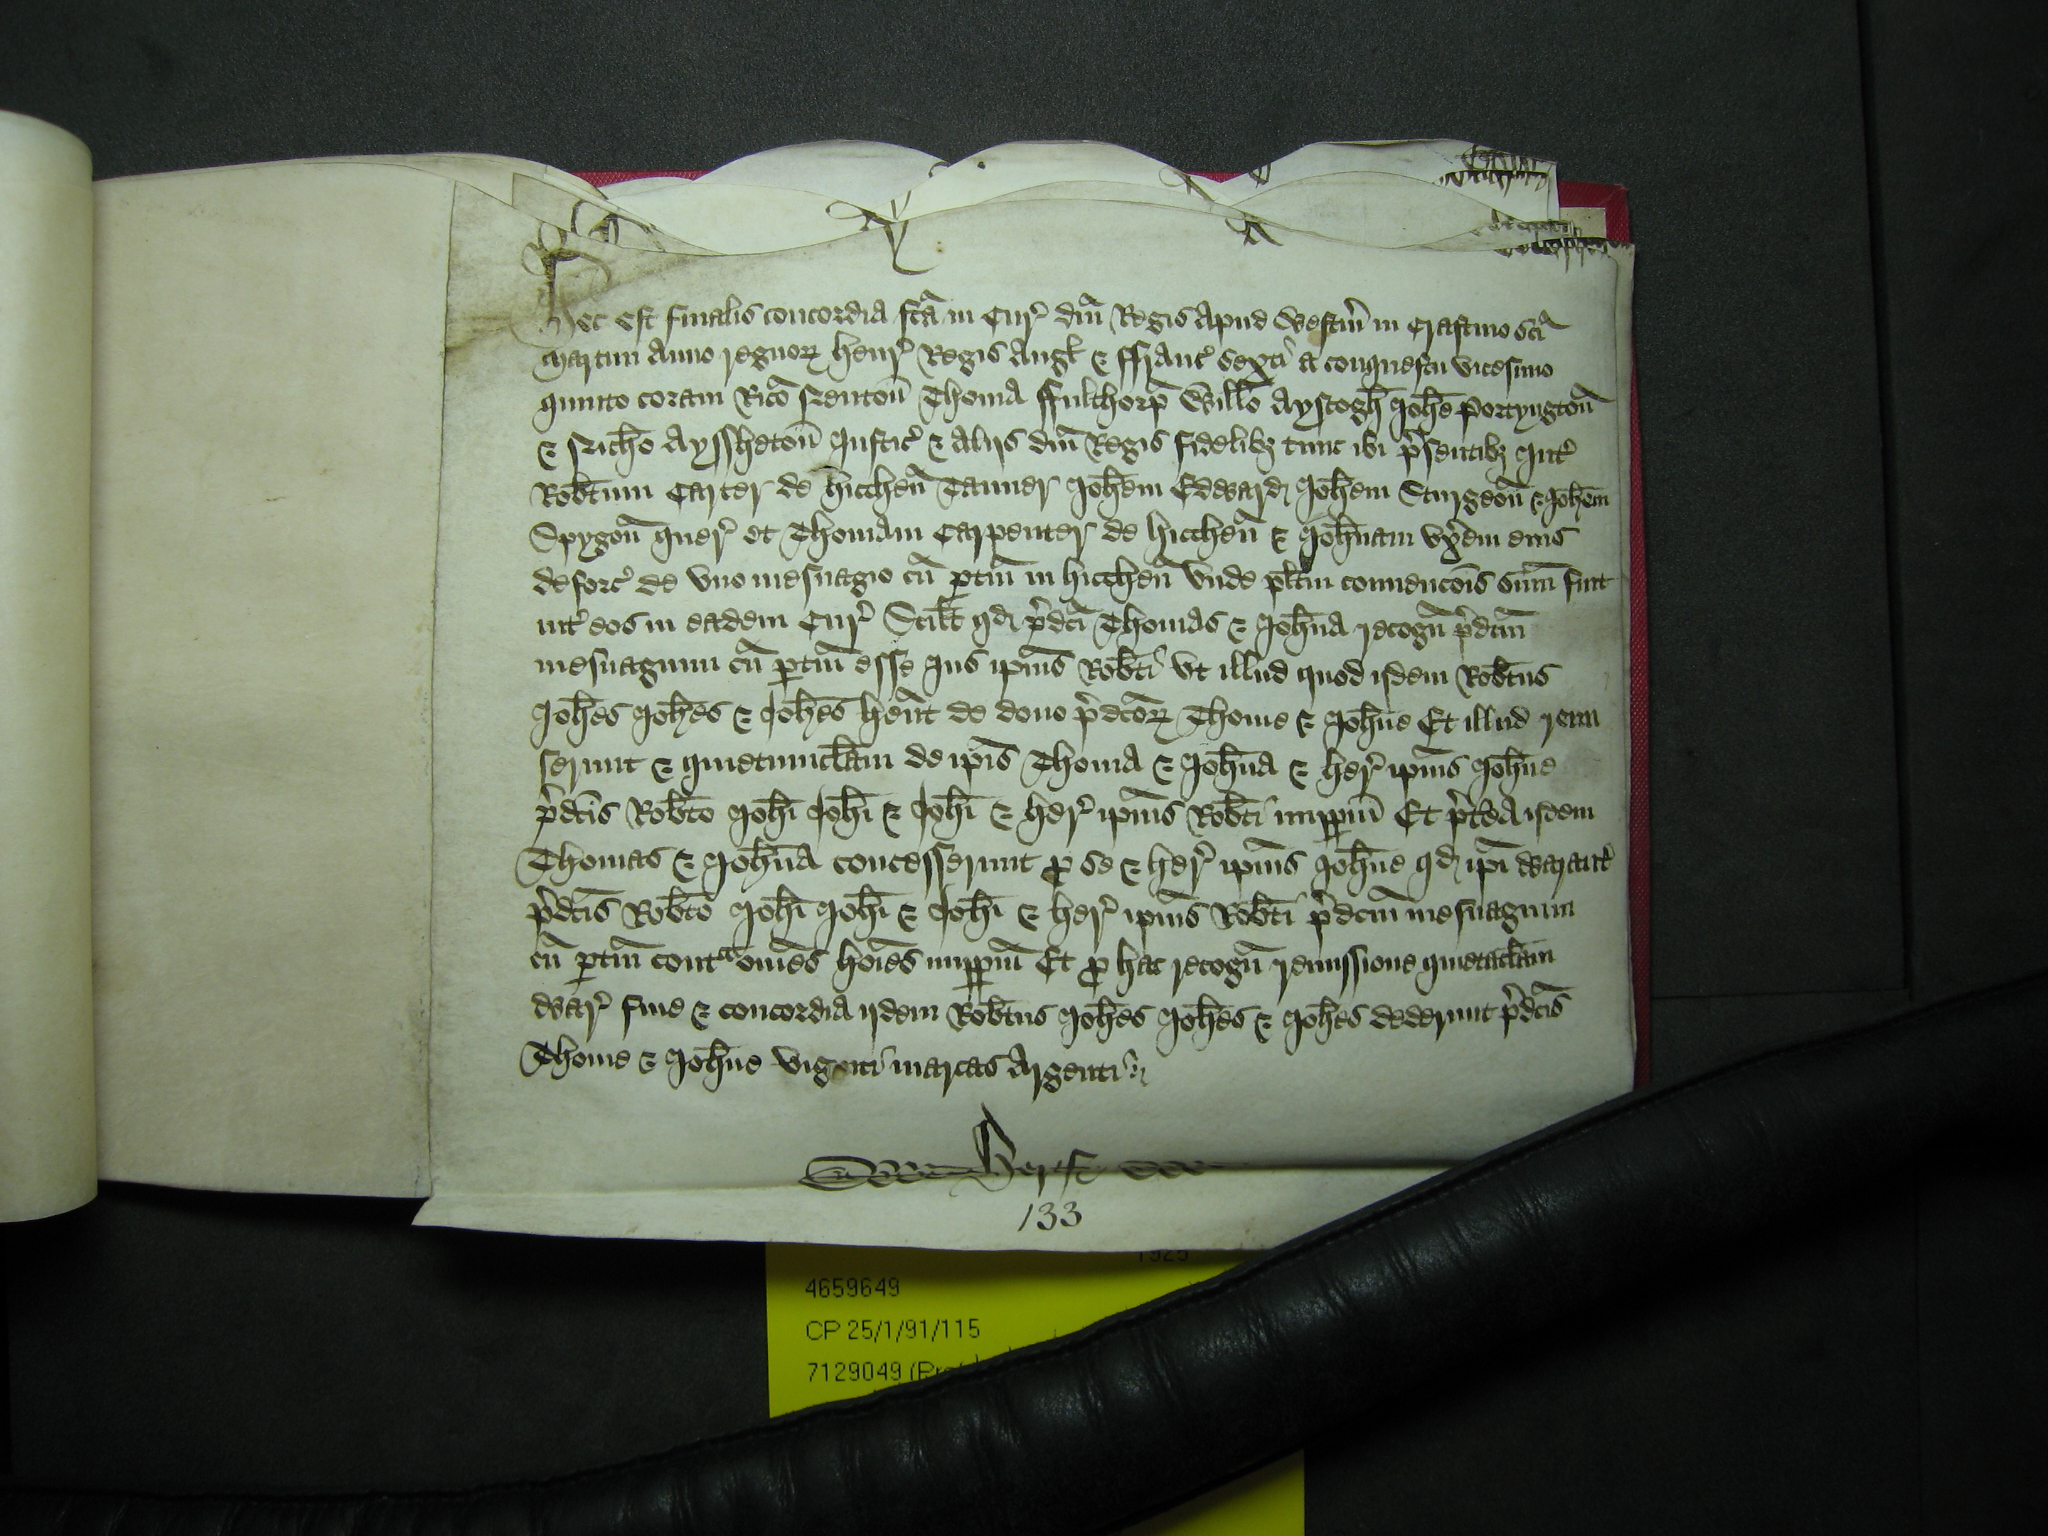 Hec est finalis concordia fc̃a in Cur̉ dñi Regis apud Westm̃ in Crastino Sc̃i
Martini anno regnoꝝ Henr̉ Regis Angł & ffranc̉ sexti a conquestu vicesimo
quinto coram Ric̃o Neuton̄ Thoma ffulthorp̄ Willo Ayscogh̄ Joh̄e Portyngton̄
& Nich̄o Ayssheton̄ Justic̉ & alijs dñi Regis fidelibȝ tunc ibi p̉sentibȝ Int̉
Rob̄tum Carter de Hicchen̄ Tanner Joh̄em Edward Joh̄em Sturgeon̄ & Joh̄em
Spygon̄ quer̉ et Thomam Carpenter de Hicchen̄ & Joh̄nam vx̉em eius
deforc̉ de vno mesuagio cū ꝑtin̄ in Hicchen̄ Vnde pl̄itm conuenc̄ois sum̄ fuit
int̉ eos in eadem Cur̉ Scilt qd p̉dc̄i Thomas & Joh̄na recogn̄ p̉dc̄m
mesuagium cū ꝑtin̄ esse Jus ip̄ius Rob̄ti vt illud quod ijdem Rob̄tus
Joh̄es Joh̄es & Joh̄es hent̄ de dono p̉dc̄oꝝ Thome & Joh̄ne Et illud remi
serunt & quietumclam̄ de ip̄is Thoma & Joh̄na & her̉ ip̄ius Joh̄ne
p̉dc̄is Rob̄to Joh̄i Joh̄i & Joh̄i & her̉ ip̄ius Rob̄ti imꝑꝑm̄ Et p̉tea ijdem
Thomas & Joh̄na concesserunt ꝓ se & her̉ ip̄ius Joh̄ne qd ip̄i Warant̉
p̉dc̄is Rob̄to Joh̄i Joh̄i & Joh̄i & her̉ ip̄ius Rob̄ti p̉dc̄m mesuagium
cū ꝑtin̄ contᵃ om̄es ho̅i̅es imꝑꝑm̄ Et ꝓ hac recogn̄ remissione quietaclam̄
War̉ fine & concordia ijdem Rob̄tus Joh̄es Joh̄es & Joh̄es dederunt p̉dc̄is
Thome & Joh̄ne viginti marcas argenti
Hertf
133
1925
4659649
CP 25/1/91/115
7129049